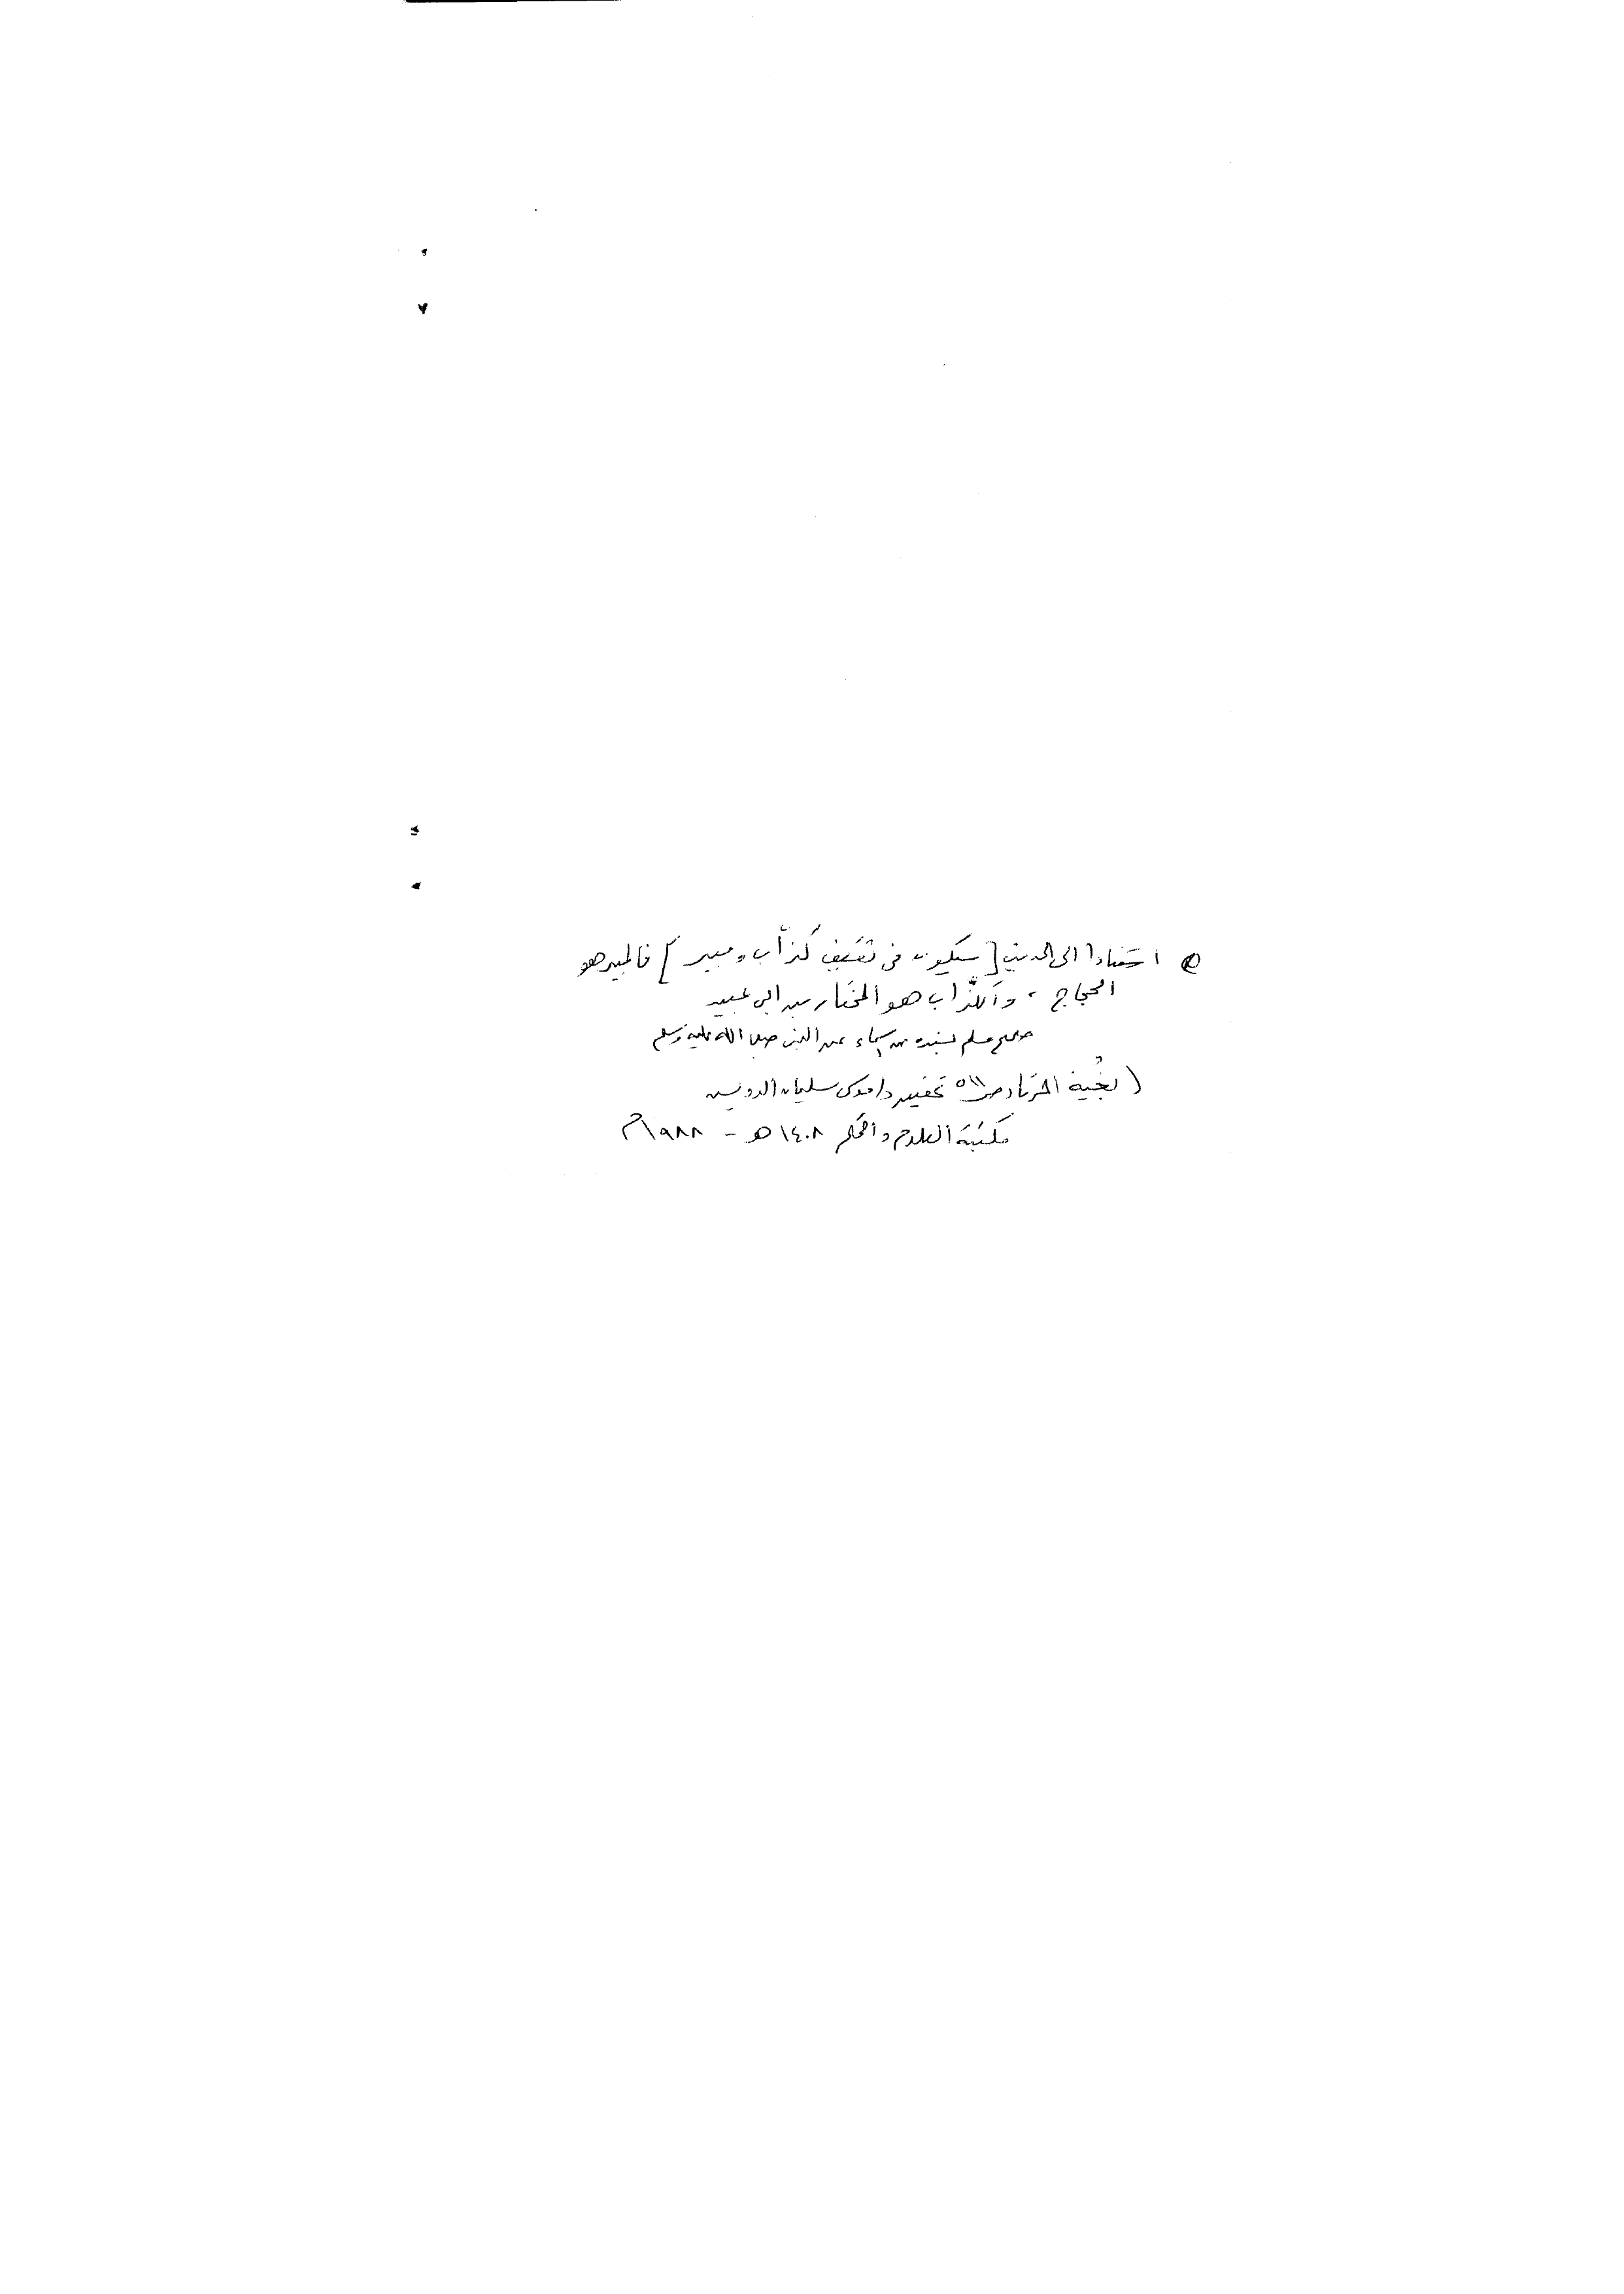 استنادا الى الحديث [ سيكون في ثقيف كذّاب ومبير ] فالمبير هو
الحجاج ، والكذّاب هو المختار بن ابي عبيد
صحيح مسلم بسنده عن اسماء عن النبي صلى الله عليه وسلم
( بُغية المرتاد ص تحقيق د / موسى سليمان الدويش
مكتبة العلوم والحكم ١٤٠٨ هـ - ١٩٨٨ م